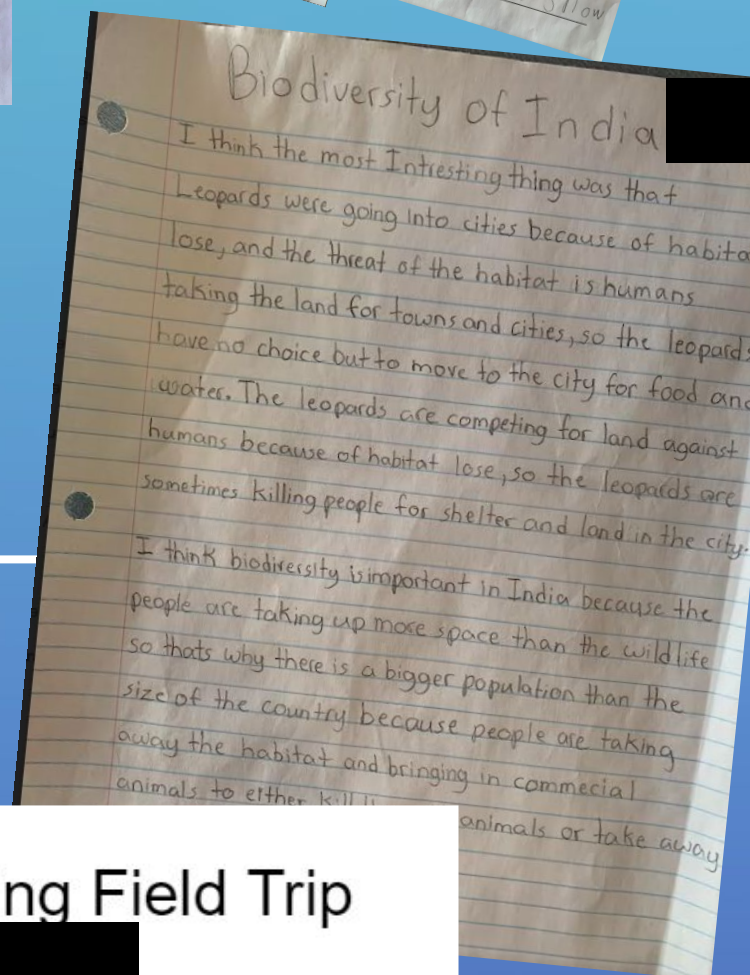 llow
Biodiversity of India
I think the most Intresting thing was that
Leopards were going into cities because of habita
lose, and the threat of the habitat is humans
taking the land for towns and cities, so the leopards
have no choice but to move to the city for food and
water. The leopards are competing for land against
humans because of habitat lose, so the leopards are
sometimes killing people for shelter and land in the city.
I think biodiversity is important in India because the
people are taking up more space than the wildlife
so thats why there is a bigger population than the
size of the country because people are taking
away the habitat and bringing in commecial
animals to either kill animals or take away
ng Field Trip